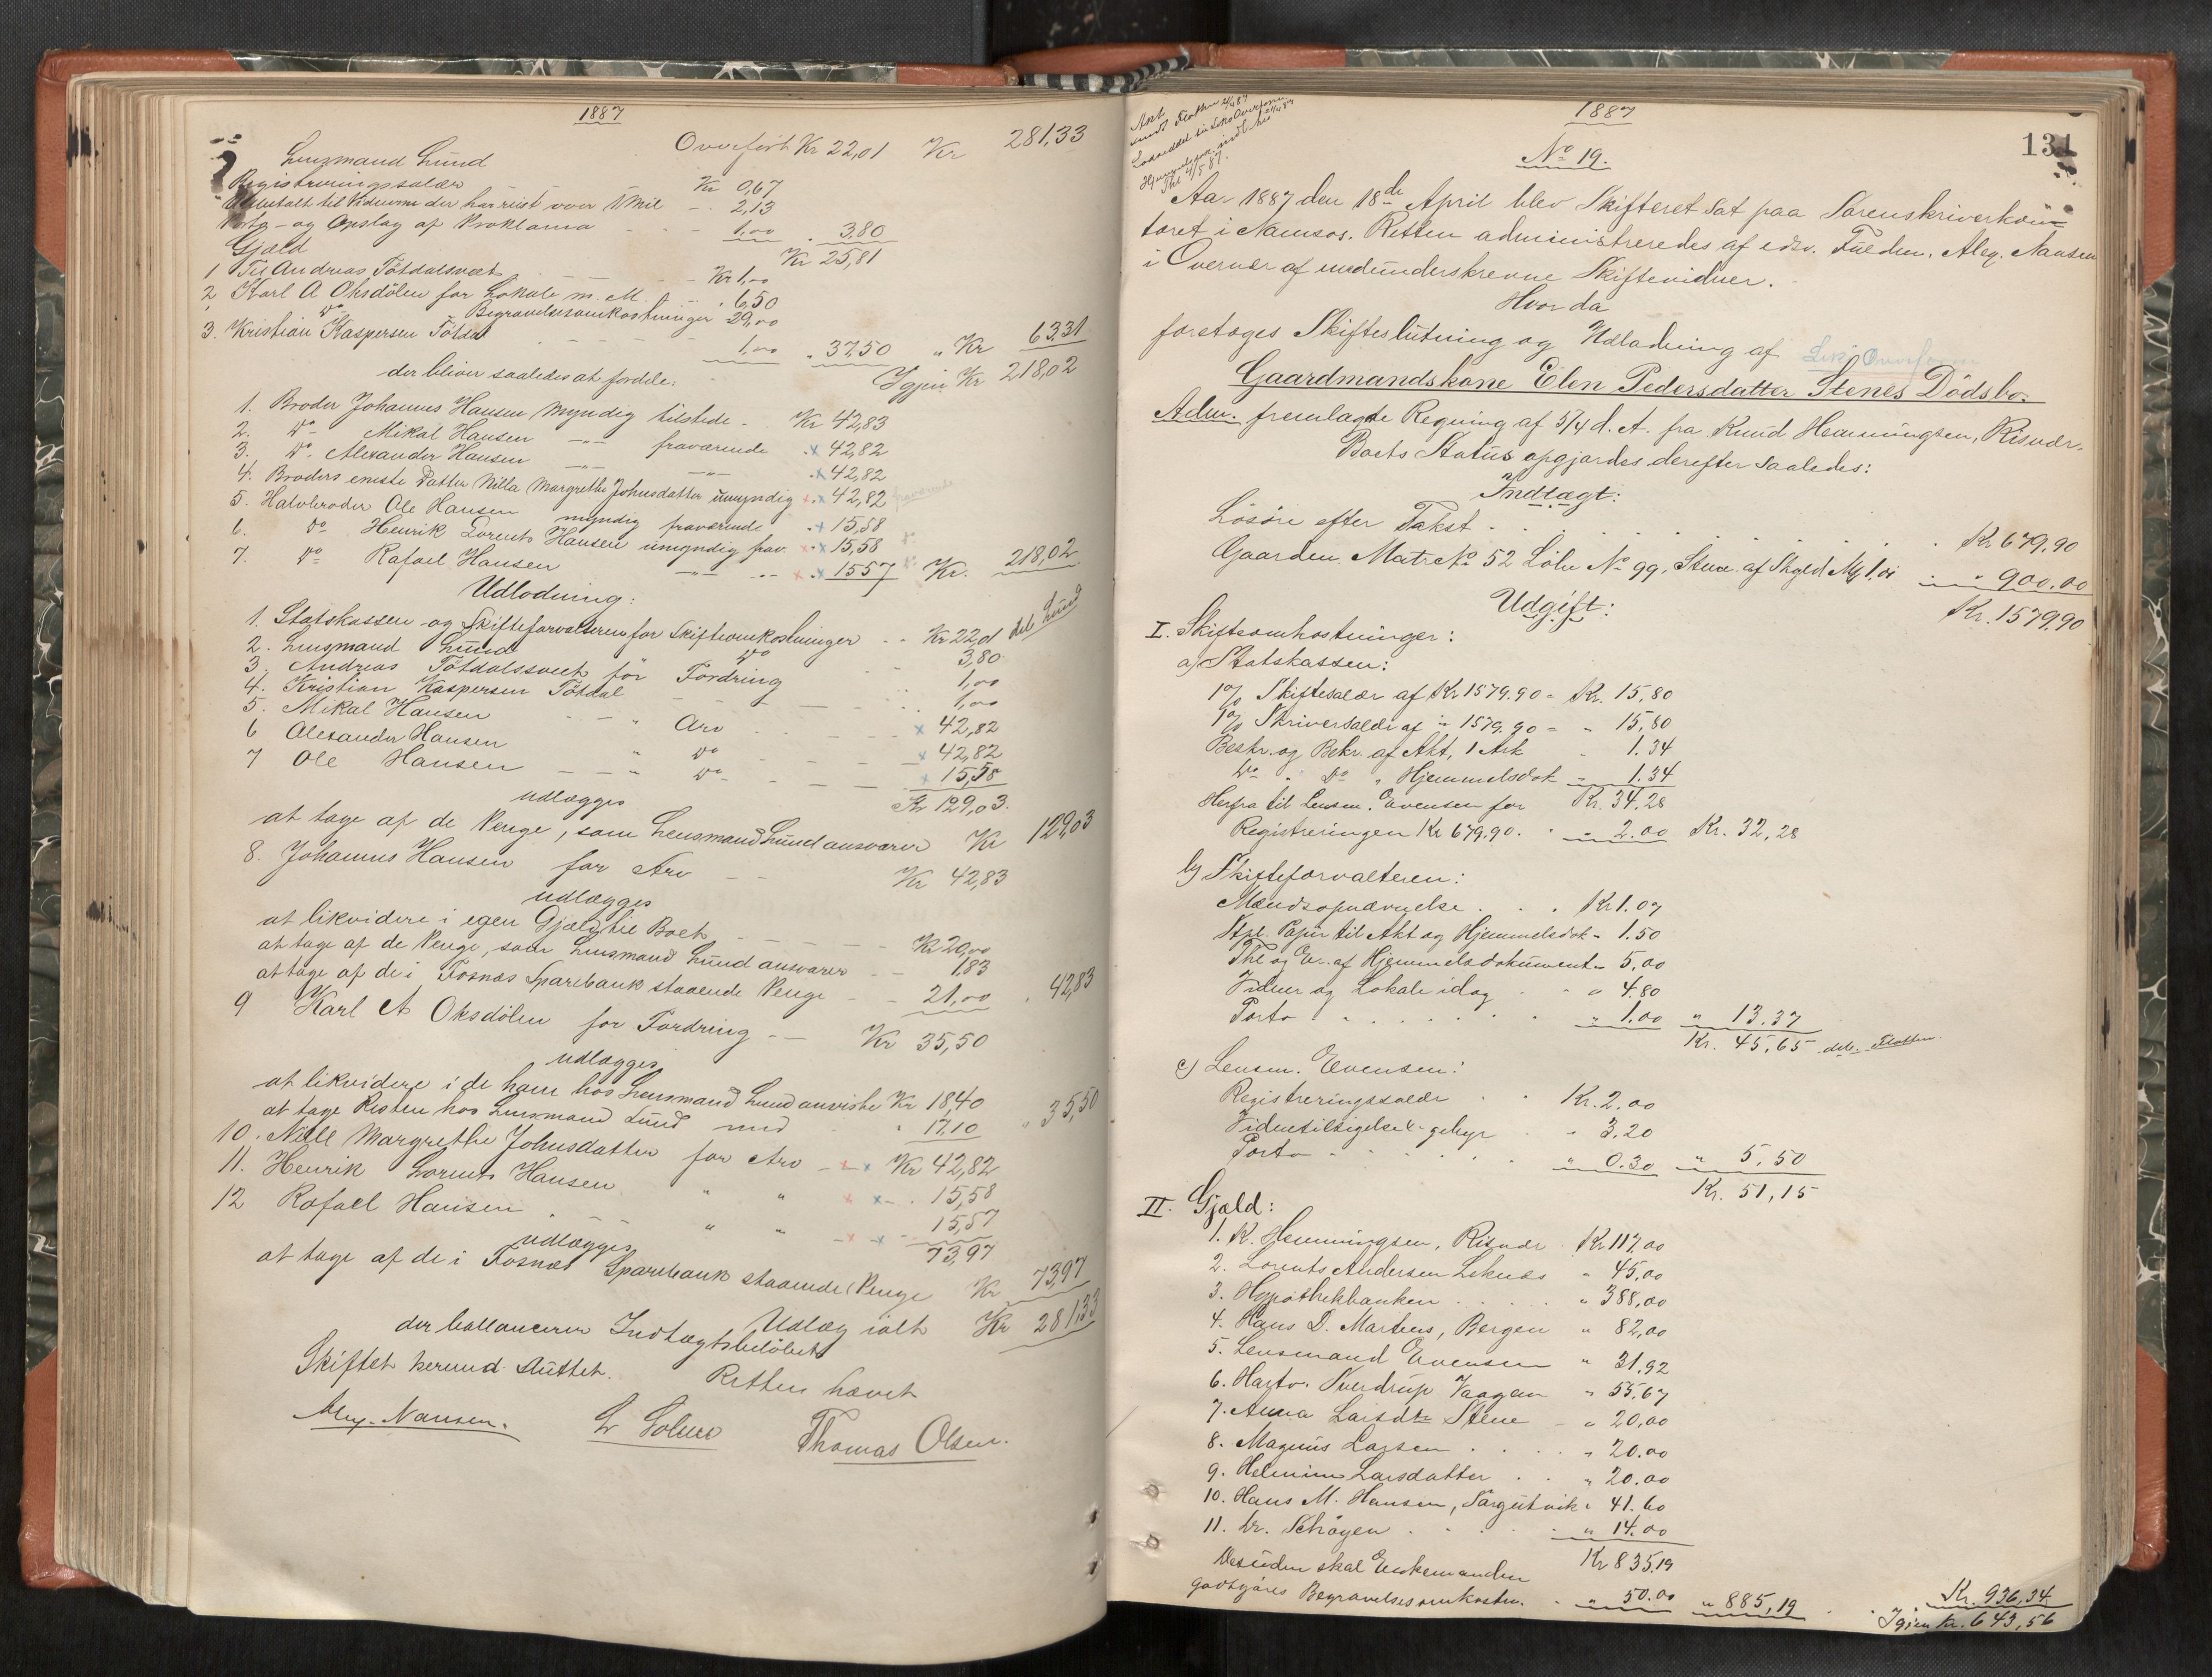 1887
Overført Kr 22,01 Kr 281,33
Lensmand Lund
Registreringssalær Kr 0,67
til Vidnerne der har reist over 1 Mil - 2,13
Porto- og Opslag af Proklama - - 1,00 . 3,80
Kr 25,81
Gjæld
1 Til Andreas Tötdalsvedt - - Kr 1,00
2 Karl A Oksdölen for Lokale m. M. " 6,50
Do Begravelsesomkostninger 29,00
3. Kristian Kaspersen Tötdal - - - 1,00 " 37,50 " Kr 63,31
Igjen Kr 218,02
der bliver saaledes at fordele:
1. Broder Johannes Hansen myndig tilstede - Kr 42,83
2. Do Mikal Hansen -"- fraværende . x 42,82
3. Do Alexander Hansen -"- -"- . x 42,82
4. Broders eneste Datter Nilla Margrethe Johnsdatter umyndig x . x 42,82 fraværende
5. Halvbroder Ole Hansen myndig fraværende . x 15,58
6. Do Henrik Lorents Hansen umyndig frav. x . x 15,58
7. Do Rafael Hansen -"- -"- x . x 15,57 Kr. 218,02
Udlodning:
1. Statskassen og Skifteforvalteren for Skifteomkostninger - - Kr 22,01 deb. Lund
2. Lensmand Lund Do 3,80
3. Andreas Tötdalsvedt for Fordring - 1,00
4. Kristian Kaspersen Tötdal - - - 1,00
5. Mikal Hansen - - " Arv - - - x 42,82
6 Alexander Hansen " Do - - - x 42,82
7 Ole Hansen - - " Do - - - x 15,58
Kr 129,03.
udlægges
at tage af de Penge, som Lensmand Lund ansvarer Kr 129,03
8. Johannes Hansen for Arv - - Kr 42,83
udlægges
at likvidere i egen Gjæld til Boet - - - Kr 20,00
at tage af de Penge, som Lensmand Lund ansvarer - - 1,83
at tage af de i Fosnæs Sparebank staaende Penge - - 21,00 . 42,83
9 Karl A Oksdölen for Fordring - - Kr 35,50
udlægges
at likvidere i de ham hos Lensmand Lund anviste Kr 18,40
at tage Resten hos Lensmand Lund med " 17,10 " 35,50
10. Nille Margrethe Johnsdatter for Arv - x - x Kr 42,82
11. Henrik Lorents Hansen " " x x - . 15,58
12 Rafael Hansen - - " " - x - x - 15,57
73,97
udlægges
at tage af de i Fosnæs Sparebank staaende Penge Kr 73,97
Udlæg ialt Kr 281,33
der ballancerer Indtægtsbelöbet
Skiftet hermed sluttet.
Retten hævet
Alex. Nansen. L Solum Thomas Olsen.
1887
131
Akt
No 19.
Aar 1887 den 18de April blev Skifteret sat paa Sorenskriverkon=
toret i Namsos. Retten administreredes af edsv. Fuldm. Alex. Nansen
i Overvær af undunderskrevne Skiftevidner.
Hvorda
foretoges Skifteslutning og Udlodning af
Gaardmandskone Elen Pedersdatter Stenes Dödsbo.
Adm. fremlagde Regning af 5/4 d. A. fra Knud Henningsen, Risvær.
Boets Status opgjordes derefter saaledes:
Indtægt:
Lösöre efter Takst . . . . . . . Kr 679,90
Gaarden Matr No 52 Löbe No 99, Stene af Skyld Mk 1.01 . . " 900.00
Kr. 1579,90
Udgift:
I. Skifteomkostninger:
a) Statskassen:
1% Skiftesalær af Kr 1579.90 = Kr. 15,80
1% Skriversalær af " 1579.90 = " 15,80
Beskr. og Bekr. af Akt, 1 Ark " 1.34
Do " Do " Hjemmelsdok " 1.34
Kr. 34.28
Herfra til Lensm. Evensen for
Registreringen Kr 679.90. " " 2.00 Kr. 32,28
b) Skifteforvalteren:
Mændsopnævnelse . . . Kr 1.07
Stpl. Papir til Akt og Hjemmelsdok - 1.50
Thl og Ex. af Hjemmelsdokument " 5,00
Vidner og Lokale idag . - " 4.80
Porto . . . . . . . " 1.00 " 13.37
Kr. 45,65 deb. Statten
c) Lensm. Evensen:
Registreringssalær . . Kr. 2.00
Vidnetilsigelse & gebyr . " 3,20
Porto . . . . . . " 0.30 " 5,50
Kr. 51,15
II. Gjæld:
1. K. Henningsen, Risvær . Kr 117,00
2. Lorents Andersen Leknæs " 45,00
3. Hypothekbanken . . . . " 388,00
4. Hans D. Martens, Bergen " 82,00
5. Lensmand Evensen " 31,92
6. Hartv. Sverdrup Vaagen " 55,67
7. Anna Larsdtr Stene - " 20,00
8. Magnus Larsen . . . . " 20.00
9. Helmine Larsdatter . . " 20.00
10. Hans M. Hansen, Sörgutvik " 41.60
11. Dr. Schöyen . . . . . " 14.00
Kr 835,19
Desuden skal Enkemanden
godtgjøres Begravelsesomkostn. . " 50.00 " 885,19 . . Kr. 936,34
Igjen Kr. 643,56